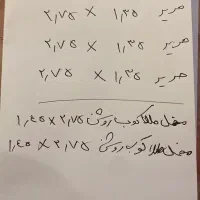 حریر ۱,۳۵ × ۲,۷۵
حریر ۱,۳۵ × ۲,۷۵
حریر ۱,۳۵ × ۲,۷۵
مخمل طلاکوب روشن ۲,۷۵ × ۱,۴۵
مخمل طلاکوب روشن ۲,۷۵ × ۱,۴۵